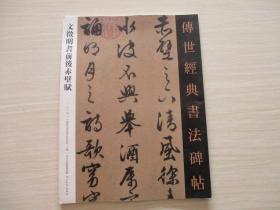 傳世經典書法碑帖
赤壁之下清風徐
水波不興舉酒屬
誦明月之詩歌窈窕
文徵明書前後赤壁賦